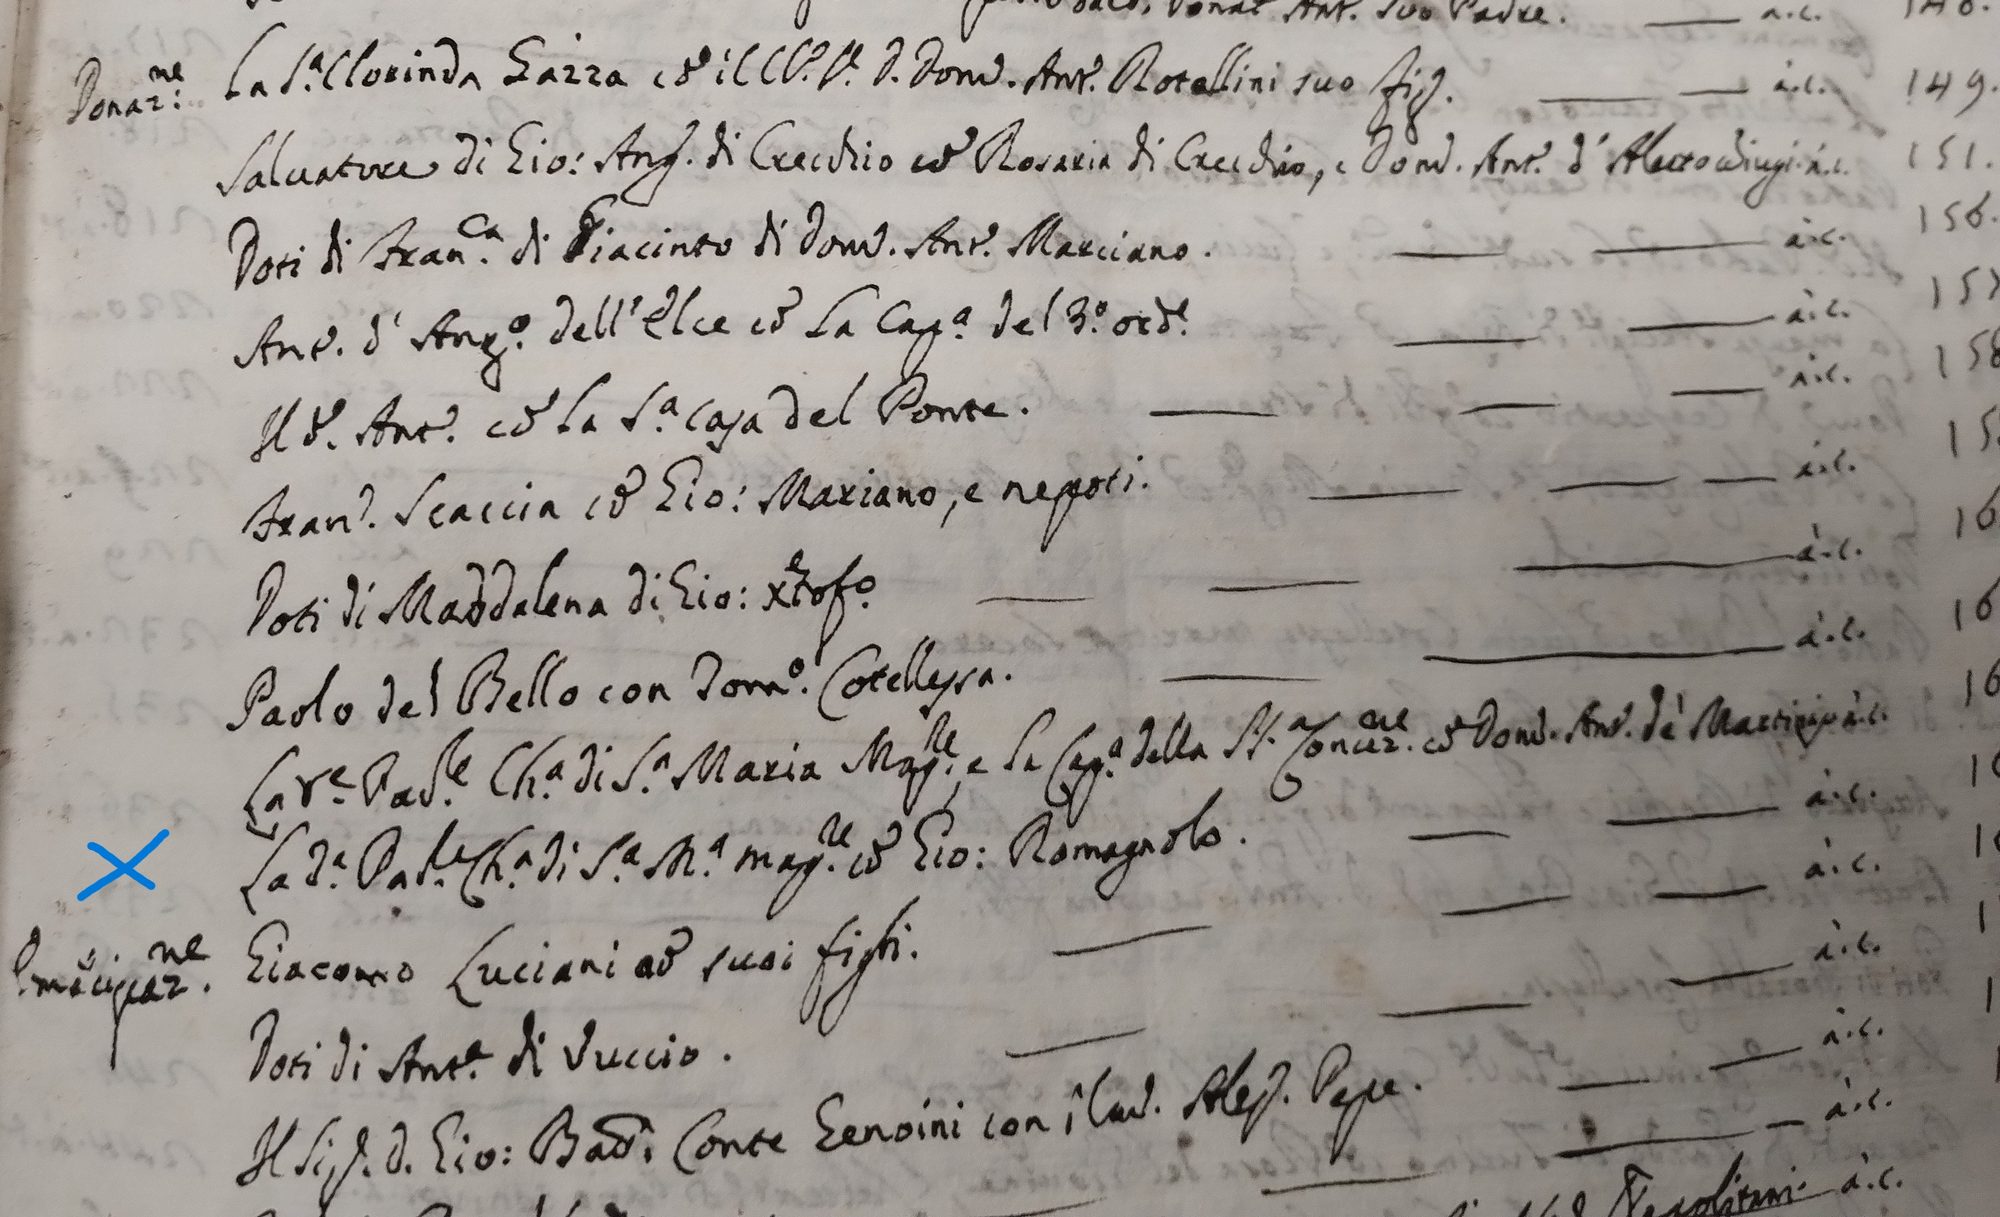 Donat Ant. suo Padre. a.c. 148.
Donaz:ne La S.a Clorinda Gazza cō il D. Dom. Ant. Rotellini suo fig. a.c. 149.
Salvatore di Gio: Ang. di Crecchio cō Rosaria di Crecchio, e Dom. Ant. d' a.c. 151.
Doti di Fran.ca di Giacinto di Dom. Ant. Marciano. a.c. 156.
Ant. d' Ang.o dell'Elce cō La Cap.a del 3.o ord.e a.c. 157
Il d. Ant. cō La S.a Casa del Ponte. a.c. 158
Fran. Scaccia cō Gio: Mariano, e nepoti. a.c. 15
Doti di Maddalena di Gio: Xtof.o a.c. 16
Paolo del Bello con Dom.o Cotellessa. a.c. 16
La Ven.e Pad.le Ch.a di S.a Maria Mag.re, e La Cap.a della SS.a Concez.ne cō Dom. Ant. de a.c. 16
La d.a Pad.le Ch.a di S.a M.a mag.re cō Gio: Romagnolo. a.c. 16
Emācipaz.ne Giacomo Luciani ad suoi figli. a.c. 1
Doti di Ant.a di Vuccio. a.c. 1
Il Sig. D. Gio: Batt. Conte Genoini con il Alesj. Pepe. a.c.
Napolitani a.c.